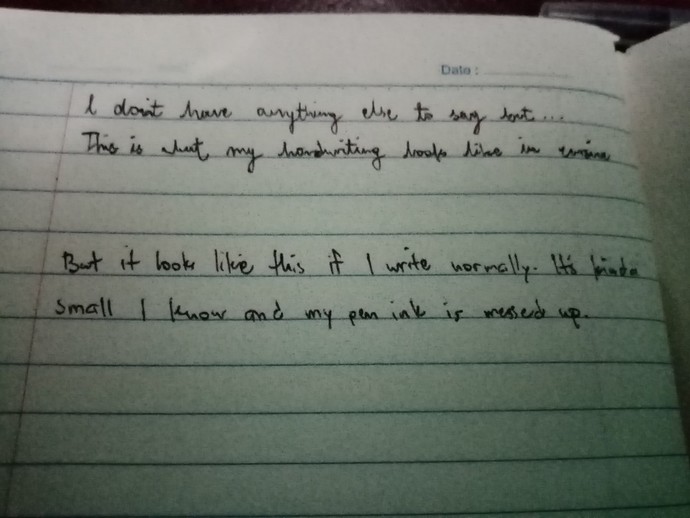 Date :
I don't have anything else to say but...
This is what my handwriting looks like in
But it looks like this if I write normally. It's kinda
small I know and my pen ink is messed up.